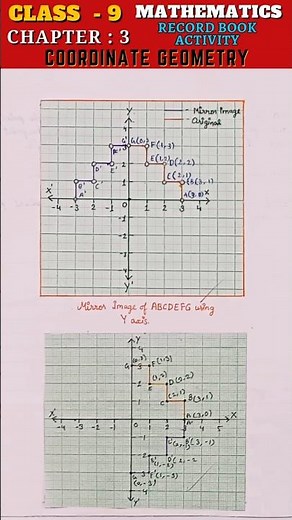 CLASS - 9 MATHEMATICS
CHAPTER : 3 RECORD BOOK
ACTIVITY
COORDINATE GEOMETRY
Y
Mirror Image
Original
4
G' G(0,3) F(1,3)
E(1,2) D(2,2)
D' E'
C(2,1) B(3,1)
B' C'
X' A' A(3,0) X
-4 -3 -2 -1 0 1 2 3 4
-1
-2
-3
-4
Y'
Mirror Image of ABCDEFG using
Y axis.
Y
4
(0,3) F(1,3)
G
(1,2) D(2,2)
E
(2,1) B(3,1)
C
A(3,0)
X' X
-4 -3 -2 -1 0 1 2 3 4 5
B'(3,-1)
D'(2,-2
G F'(1,-3)
(0,-3)
4
Y'